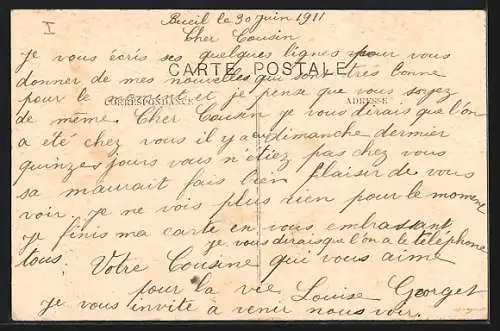 I
Bueil le 30 juin 1911
Cher Cousin
Je vous écris ses quelques lignes pour vous
CARTE POSTALE
donner de mes nouvelles qui sont très bonne
CORRESPONDANCE
ADRESSE
pour le moment et je pense que vous soyez
de même. Cher Cousin je vous dirais que l'on
a été chez vous il y a eu dimanche dernier
quinzes jours vous n'étiez pas chez vous
sa maurait fais bien plaisir de vous
voir, je ne vois plus rien pour le moment
Je finis ma carte en vous embrassant
je vous dirais que l'on a le téléphone
tous. Votre Cousine qui vous aime
pour la vie Louise Georget
Je vous invite à venir nous voir.